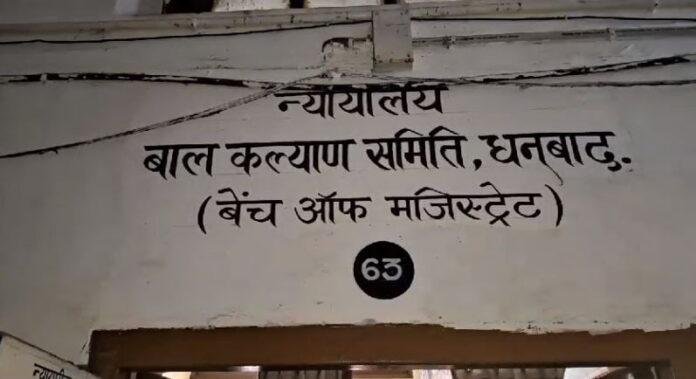 न्यायालय
बाल कल्याण समिति, धनबाद.
(बेंच ऑफ मजिस्ट्रेट)
63